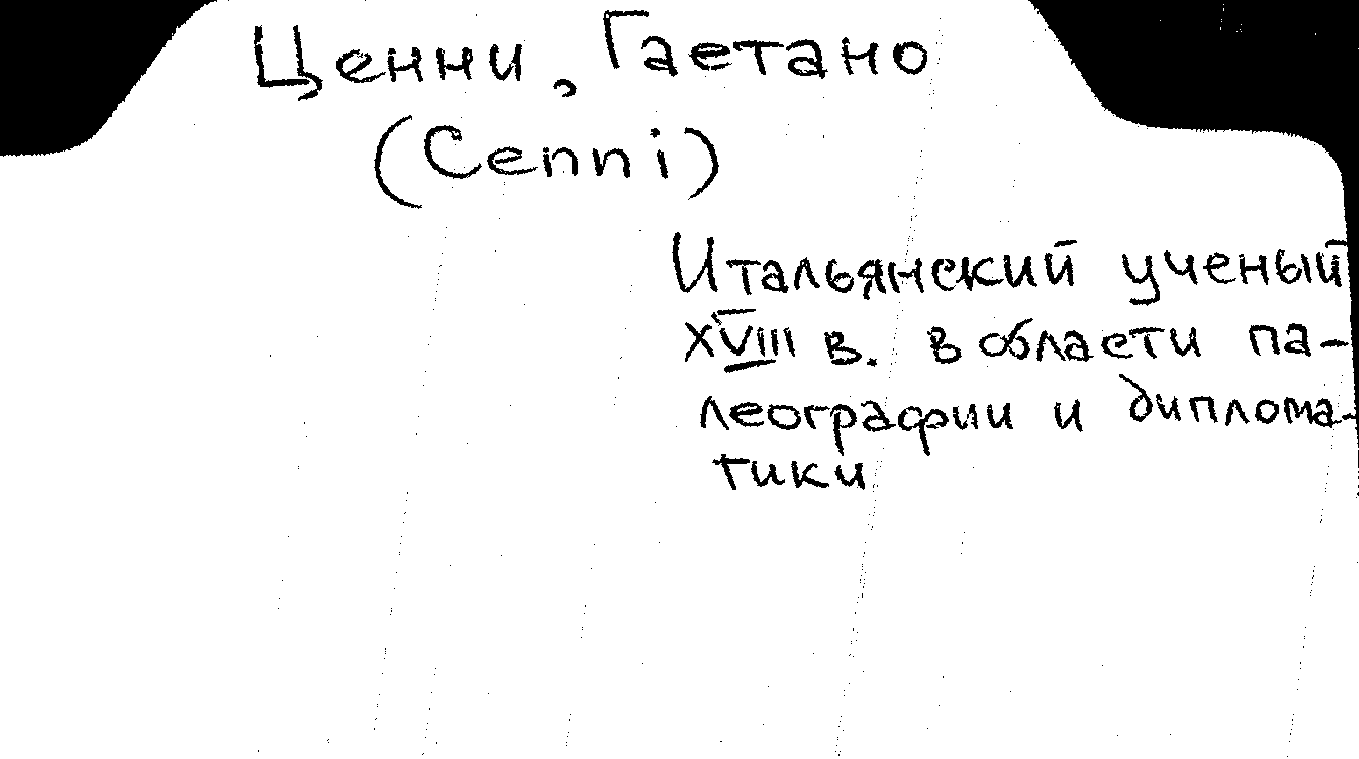 Ценни, Гаетано
(Cenni)
Итальянский ученый
XVIII в. в области па-
леографии и диплома-
тики